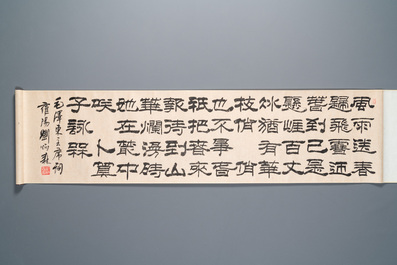 風雨送春
歸飛雪迎
春到已是
懸崖百丈
冰猶有華
枝俏 俏
也不爭春
秖把春來
報待到山
華爛漫時
她在叢中
咲 卜算
子詠槑
毛澤東主席詞
雍陽劉炳森